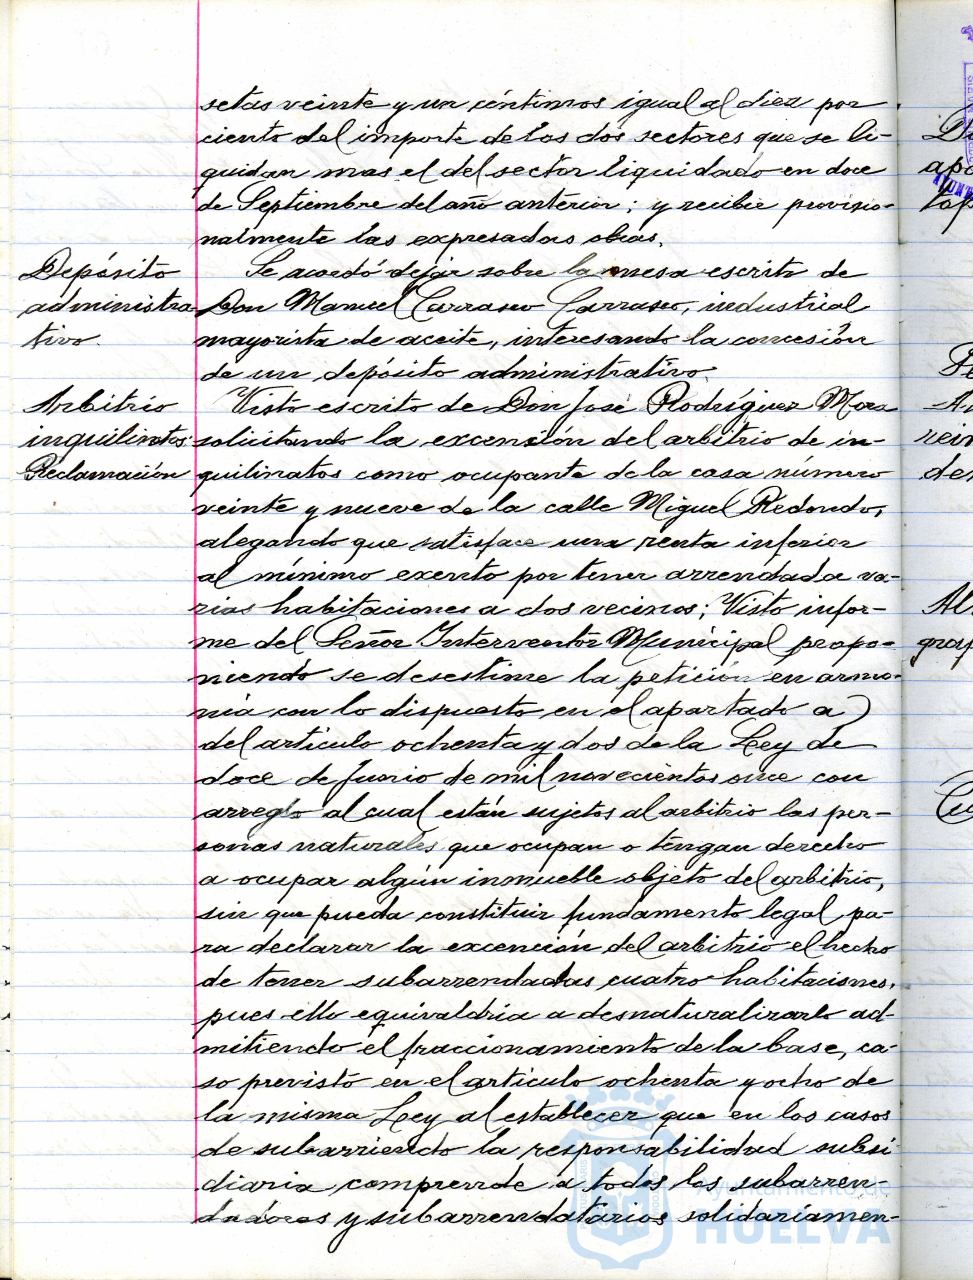 setas veinte y un céntimos igual al diez por
ciento del importe de los dos sectores que se li-
quidan mas el del sector liquidado en doce
de Septiembre del año anterior; y recibir provisio-
nalmente las expresadas obras.
Depósito
administra-
tivo.
Se acordó dejar sobre la mesa escrito de
Don Manuel Carrasco Carrasco, industrial
mayorista de aceite, interesando la concesión
de un depósito administrativo.
Arbitrio
inquilinatos.
Reclamación
Visto escrito de Don José Rodríguez Mora
solicitando la excención del arbitrio de in-
quilinatos como ocupante de la casa número
veinte y nueve de la calle Miguel Redondo,
alegando que satisface una renta inferior
al mínimo exento por tener arrendada va-
rias habitaciones a dos vecinos; Visto infor-
me del Señor Interventor Municipal propo-
niendo se desestime la petición en armo-
nía con lo dispuesto en el apartado a)
del artículo ochenta y dos de la Ley de
doce de Junio de mil novecientos once con
arreglo al cual están sujetos al arbitrio las per-
sonas naturales que ocupan o tengan derecho
a ocupar algún inmueble objeto del arbitrio,
sin que pueda constituir fundamento legal pa-
ra declarar la excención del arbitrio el hecho
de tener subarrendadas cuatro habitaciones,
pues ello equivaldria a desnaturalizarlo ad-
mitiendo el fraccionamiento de la base, ca-
so previsto en el artículo ochenta y ocho de
la misma Ley al establecer que en los casos
de subarriendo la responsabilidad subsi-
diaria comprende a todos los subarren-
dadores y subarrendatarios solidariamen-
Ayuntamiento de
HUELVA